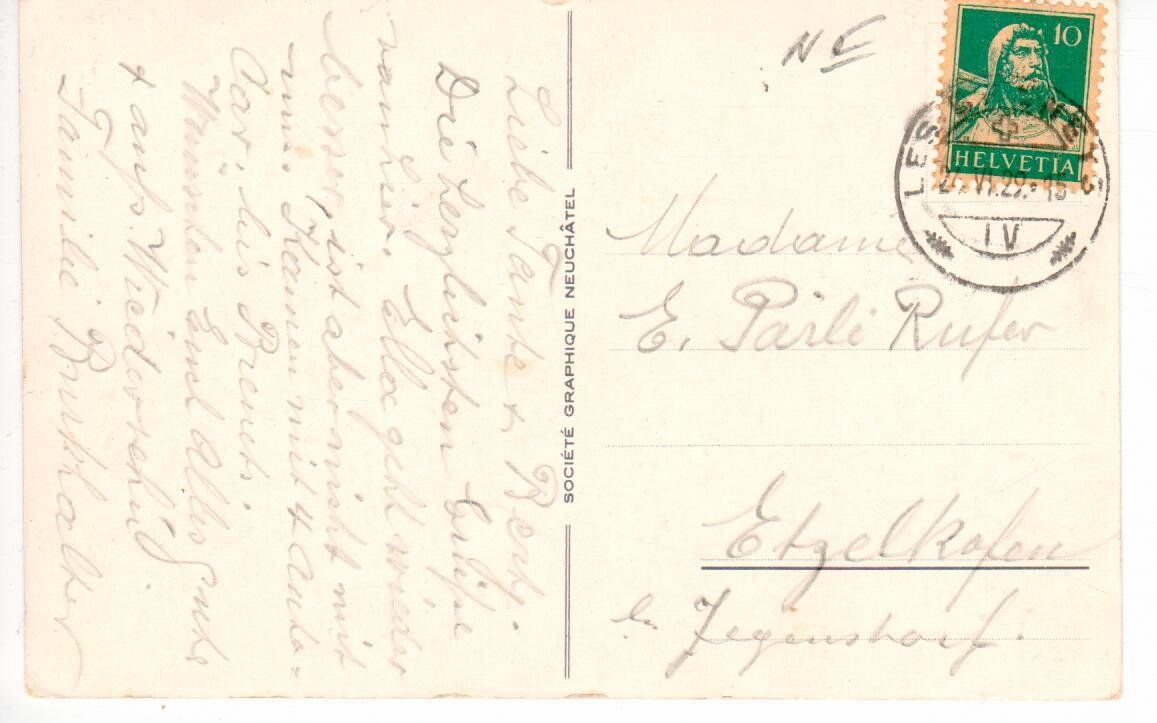 Liebe Tante & Berty.
Die herzlichsten Grüße
von hier. Ella geht wieder
besser, ist aber nicht mit
uns. Kamen mit 4 Auto=
Cars bis Brenets.
Wünschen Euch Alles Gute
& aufs Wiedersehn
Familie Burkhalter
SOCIÉTÉ GRAPHIQUE NEUCHÂTEL
N E
10
HELVETIA
LES
VI.29.-15
IV
Madame
E. Pärli Rufer
Etzelkofen
bei Jegenstorf.